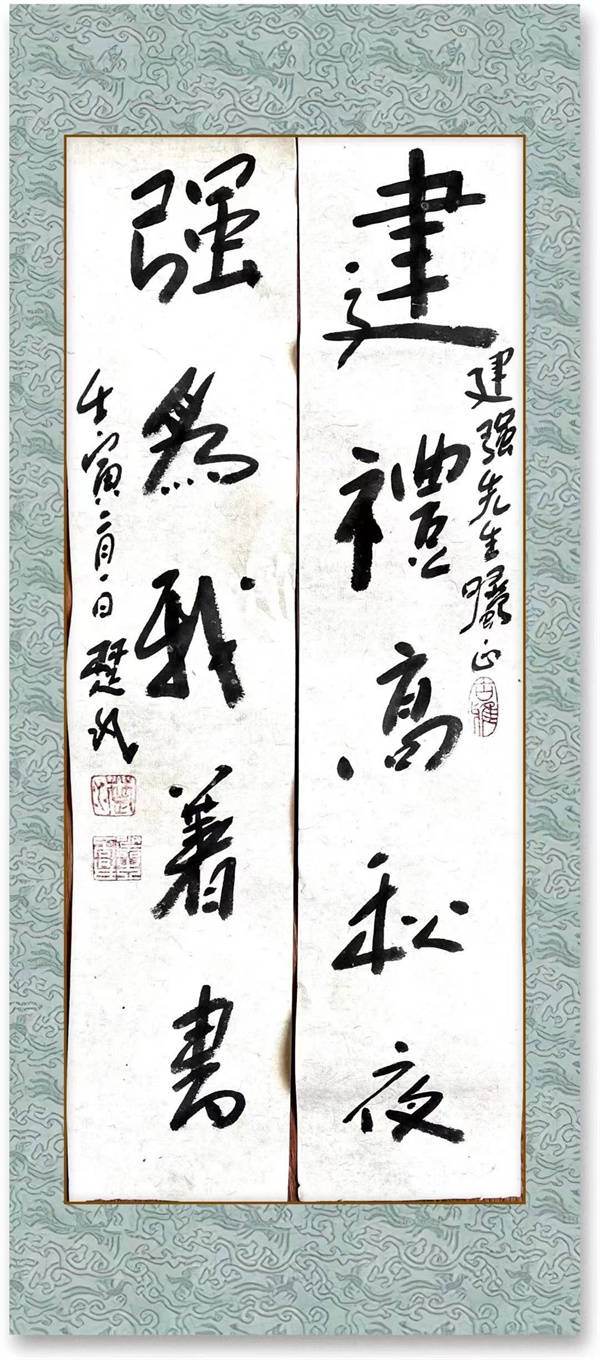 建强先生囑正
建禮高秋夜
强爲我著書
壬寅二月一日 楚